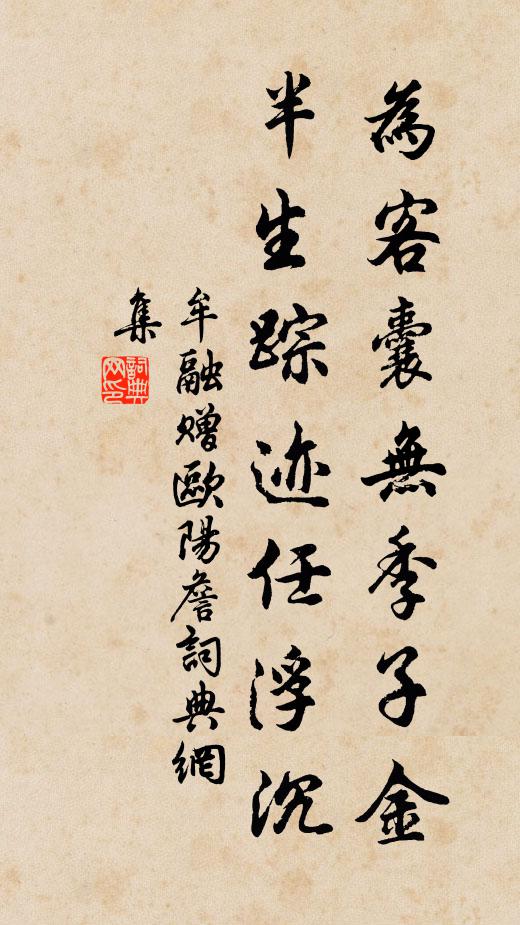 為客囊無季子金
半生踪迹任浮沉
牟融赠歐陽詹詞典網
集
詞典
网印